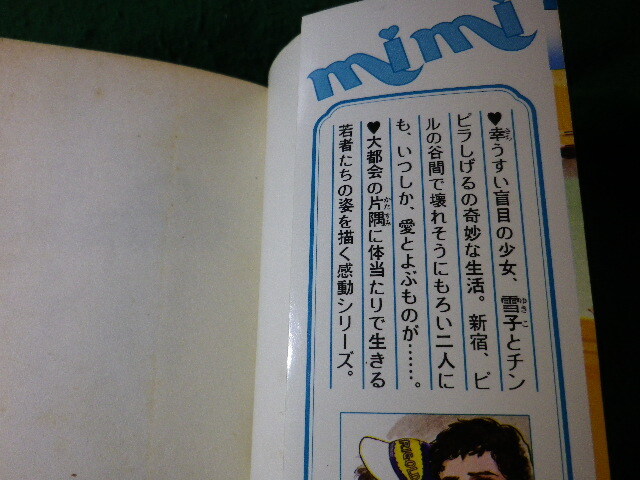 mimi
♥幸うすい盲目の少女、雪子とチン
ピラしげるの奇妙な生活。新宿、ビ
ルの谷間で壊れそうにもろい二人に
も、いつしか、愛とよぶものが……。
♥大都会の片隅に体当たりで生きる
若者たちの姿を描く感動シリーズ。